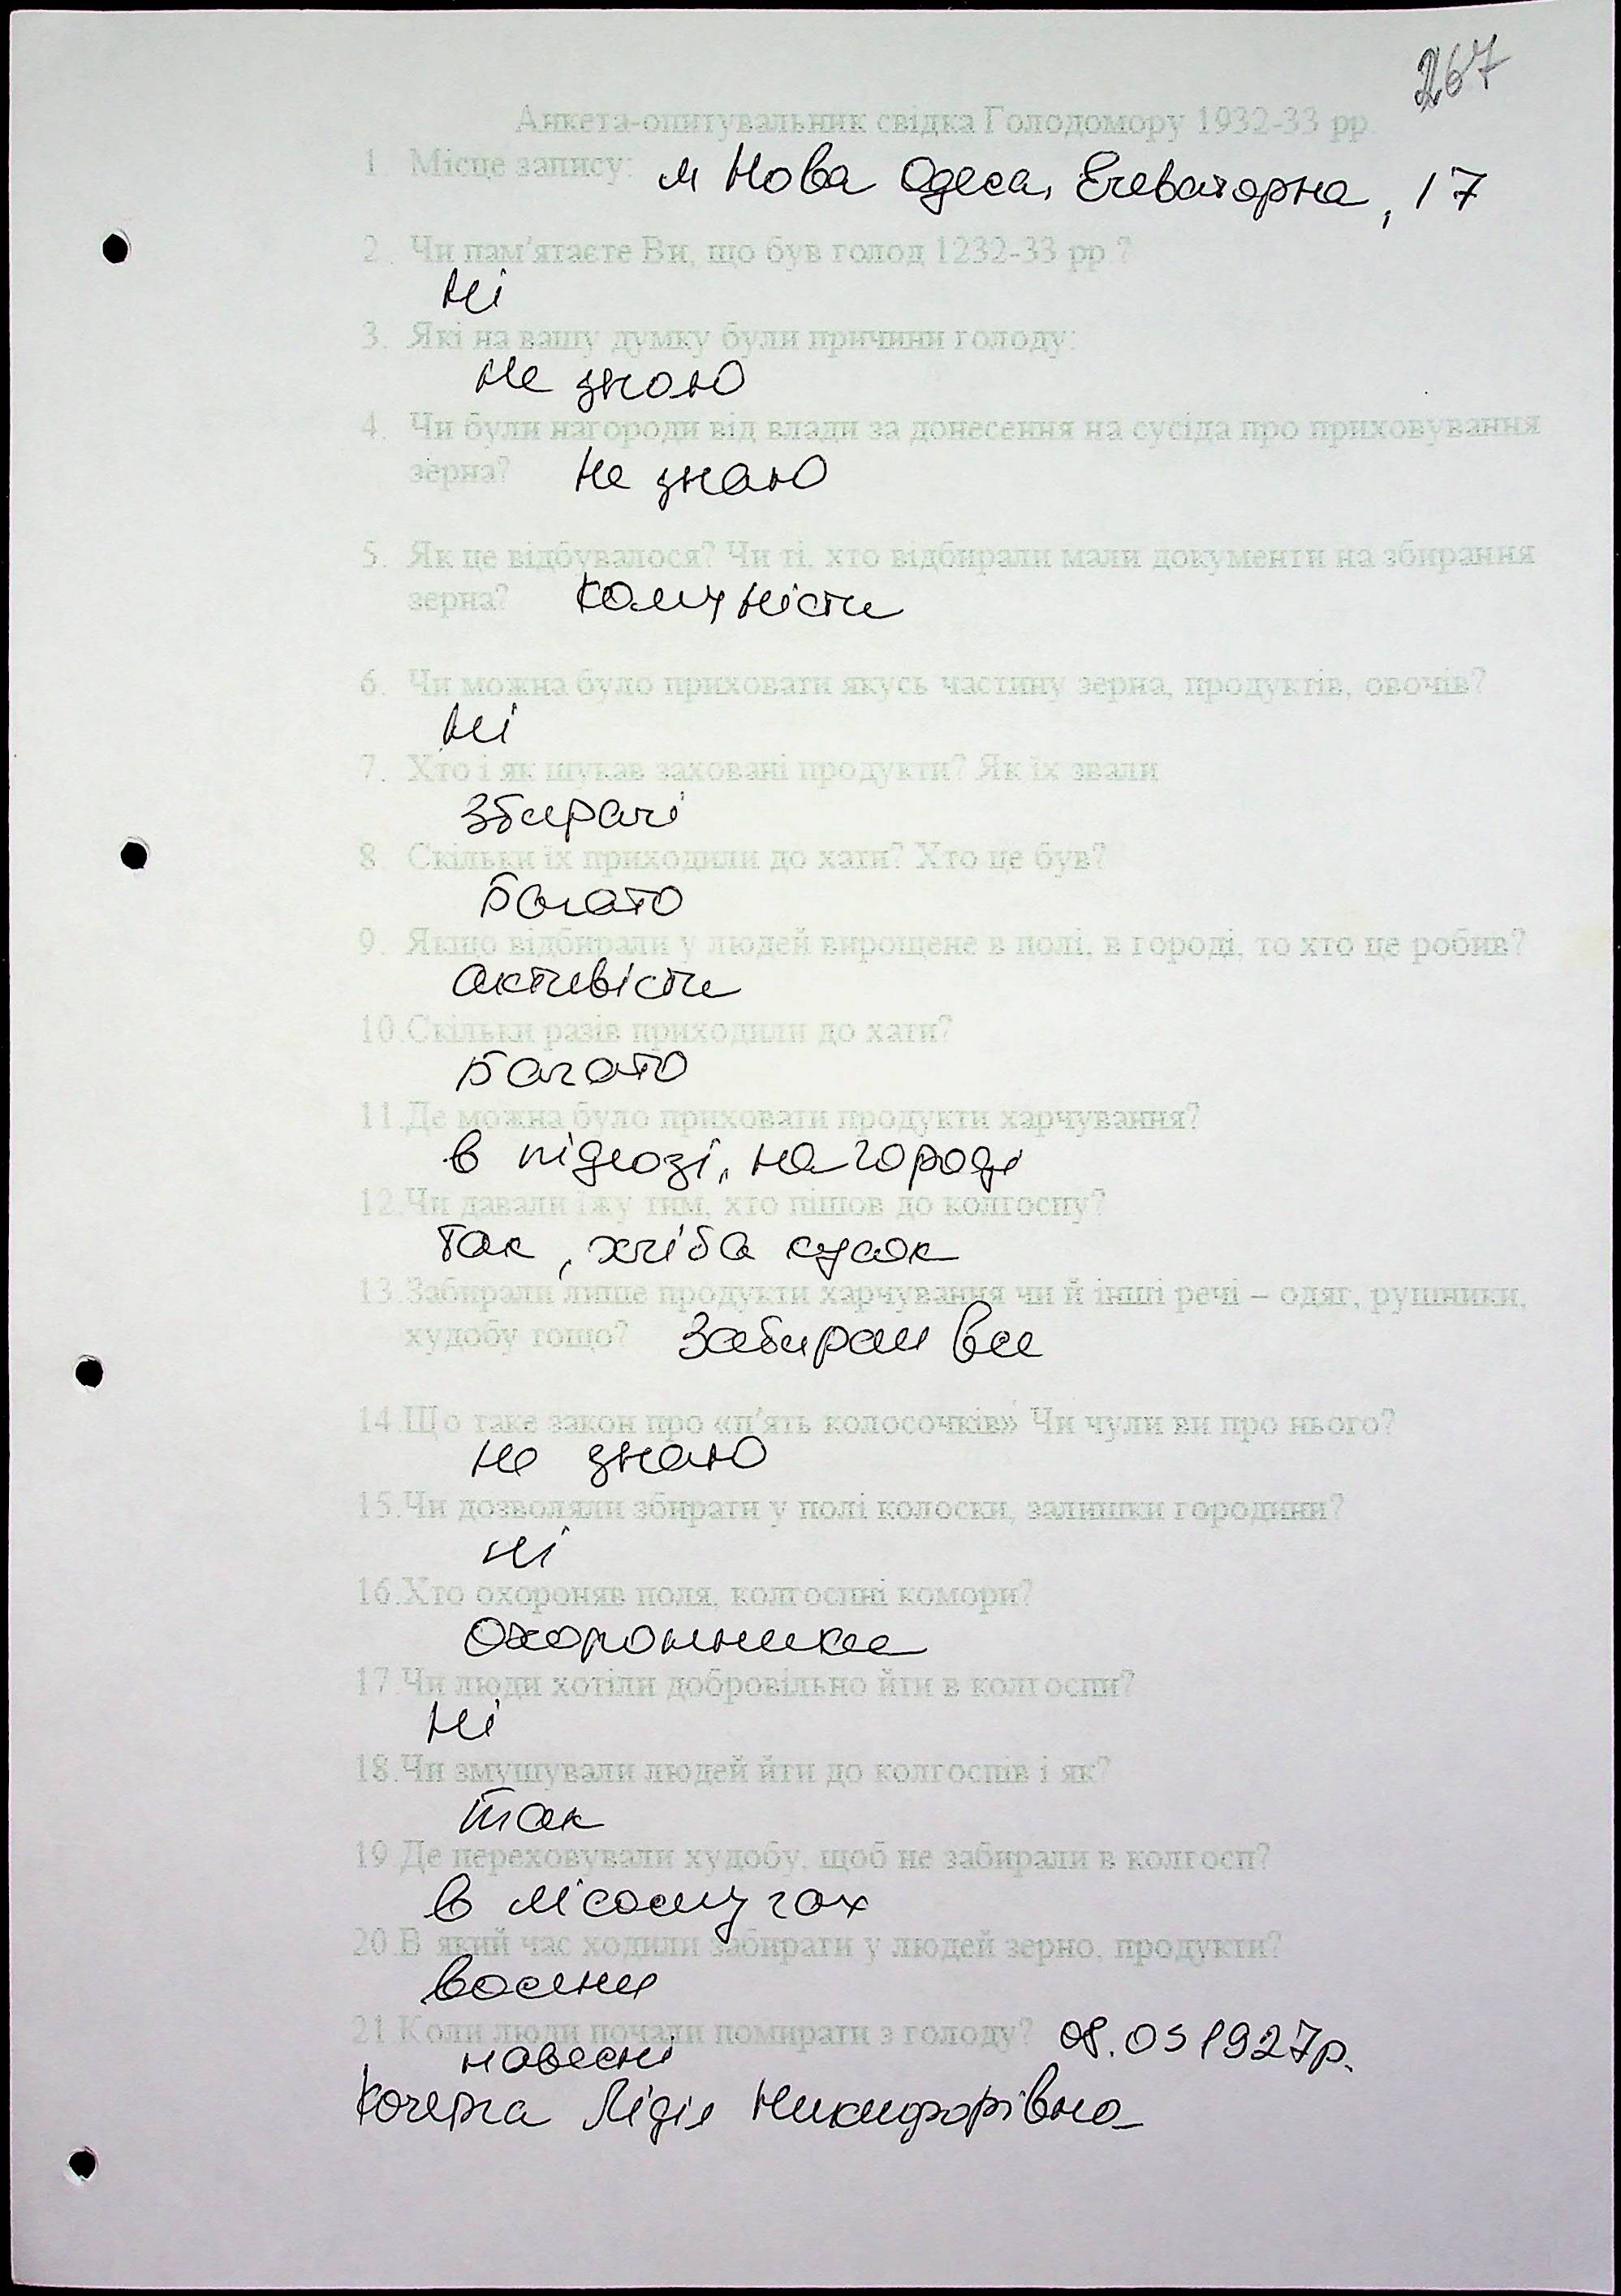 267
Анкета-опитувальник свідка Голодомору 1932-33 рр.
1. Місце запису: м Нова Одеса, Елеваторна, 17
2. Чи пам'ятаєте Ви, що був голод 1232-33 рр.?
ні
3. Які на вашу думку були причини голоду:
не знаю
4. Чи були нагороди від влади за донесення на сусіда про приховування
зерна? не знаю
5. Як це відбувалося? Чи ті, хто відбирали мали документи на збирання
зерна? комуністи
6. Чи можна було приховати якусь частину зерна, продуктів, овочів?
ні
7. Хто і як шукав заховані продукти? Як їх звали
збирачі
8. Скільки їх приходили до хати? Хто це був?
багато
9. Якщо відбирали у людей вирощене в полі, в городі, то хто це робив?
активісти
10.Скільки разів приходили до хати?
багато
11.Де можна було приховати продукти харчування?
в підлозі, на городі
12.Чи давали їжу тим, хто пішов до колгоспу?
так, хліба кусок
13.Забирали лише продукти харчування чи й інші речі – одяг, рушники,
худобу тощо? Забирали все
14.Що таке закон про «п'ять колосочків» Чи чули ви про нього?
не знаю
15.Чи дозволяли збирати у полі колоски, залишки городини?
ні
16.Хто охороняв поля, колгоспні комори?
Охоронники
17.Чи люди хотіли добровільно йти в колгоспи?
ні
18.Чи змушували людей йти до колгоспів і як?
так
19.Де переховували худобу, щоб не забирали в колгосп?
в лісосмугах
20.В який час ходили забирати у людей зерно, продукти?
восени
21.Коли люди почали помирати з голоду? 08.05 1927р.
навесні
Кочерга Лідія Никифорівна